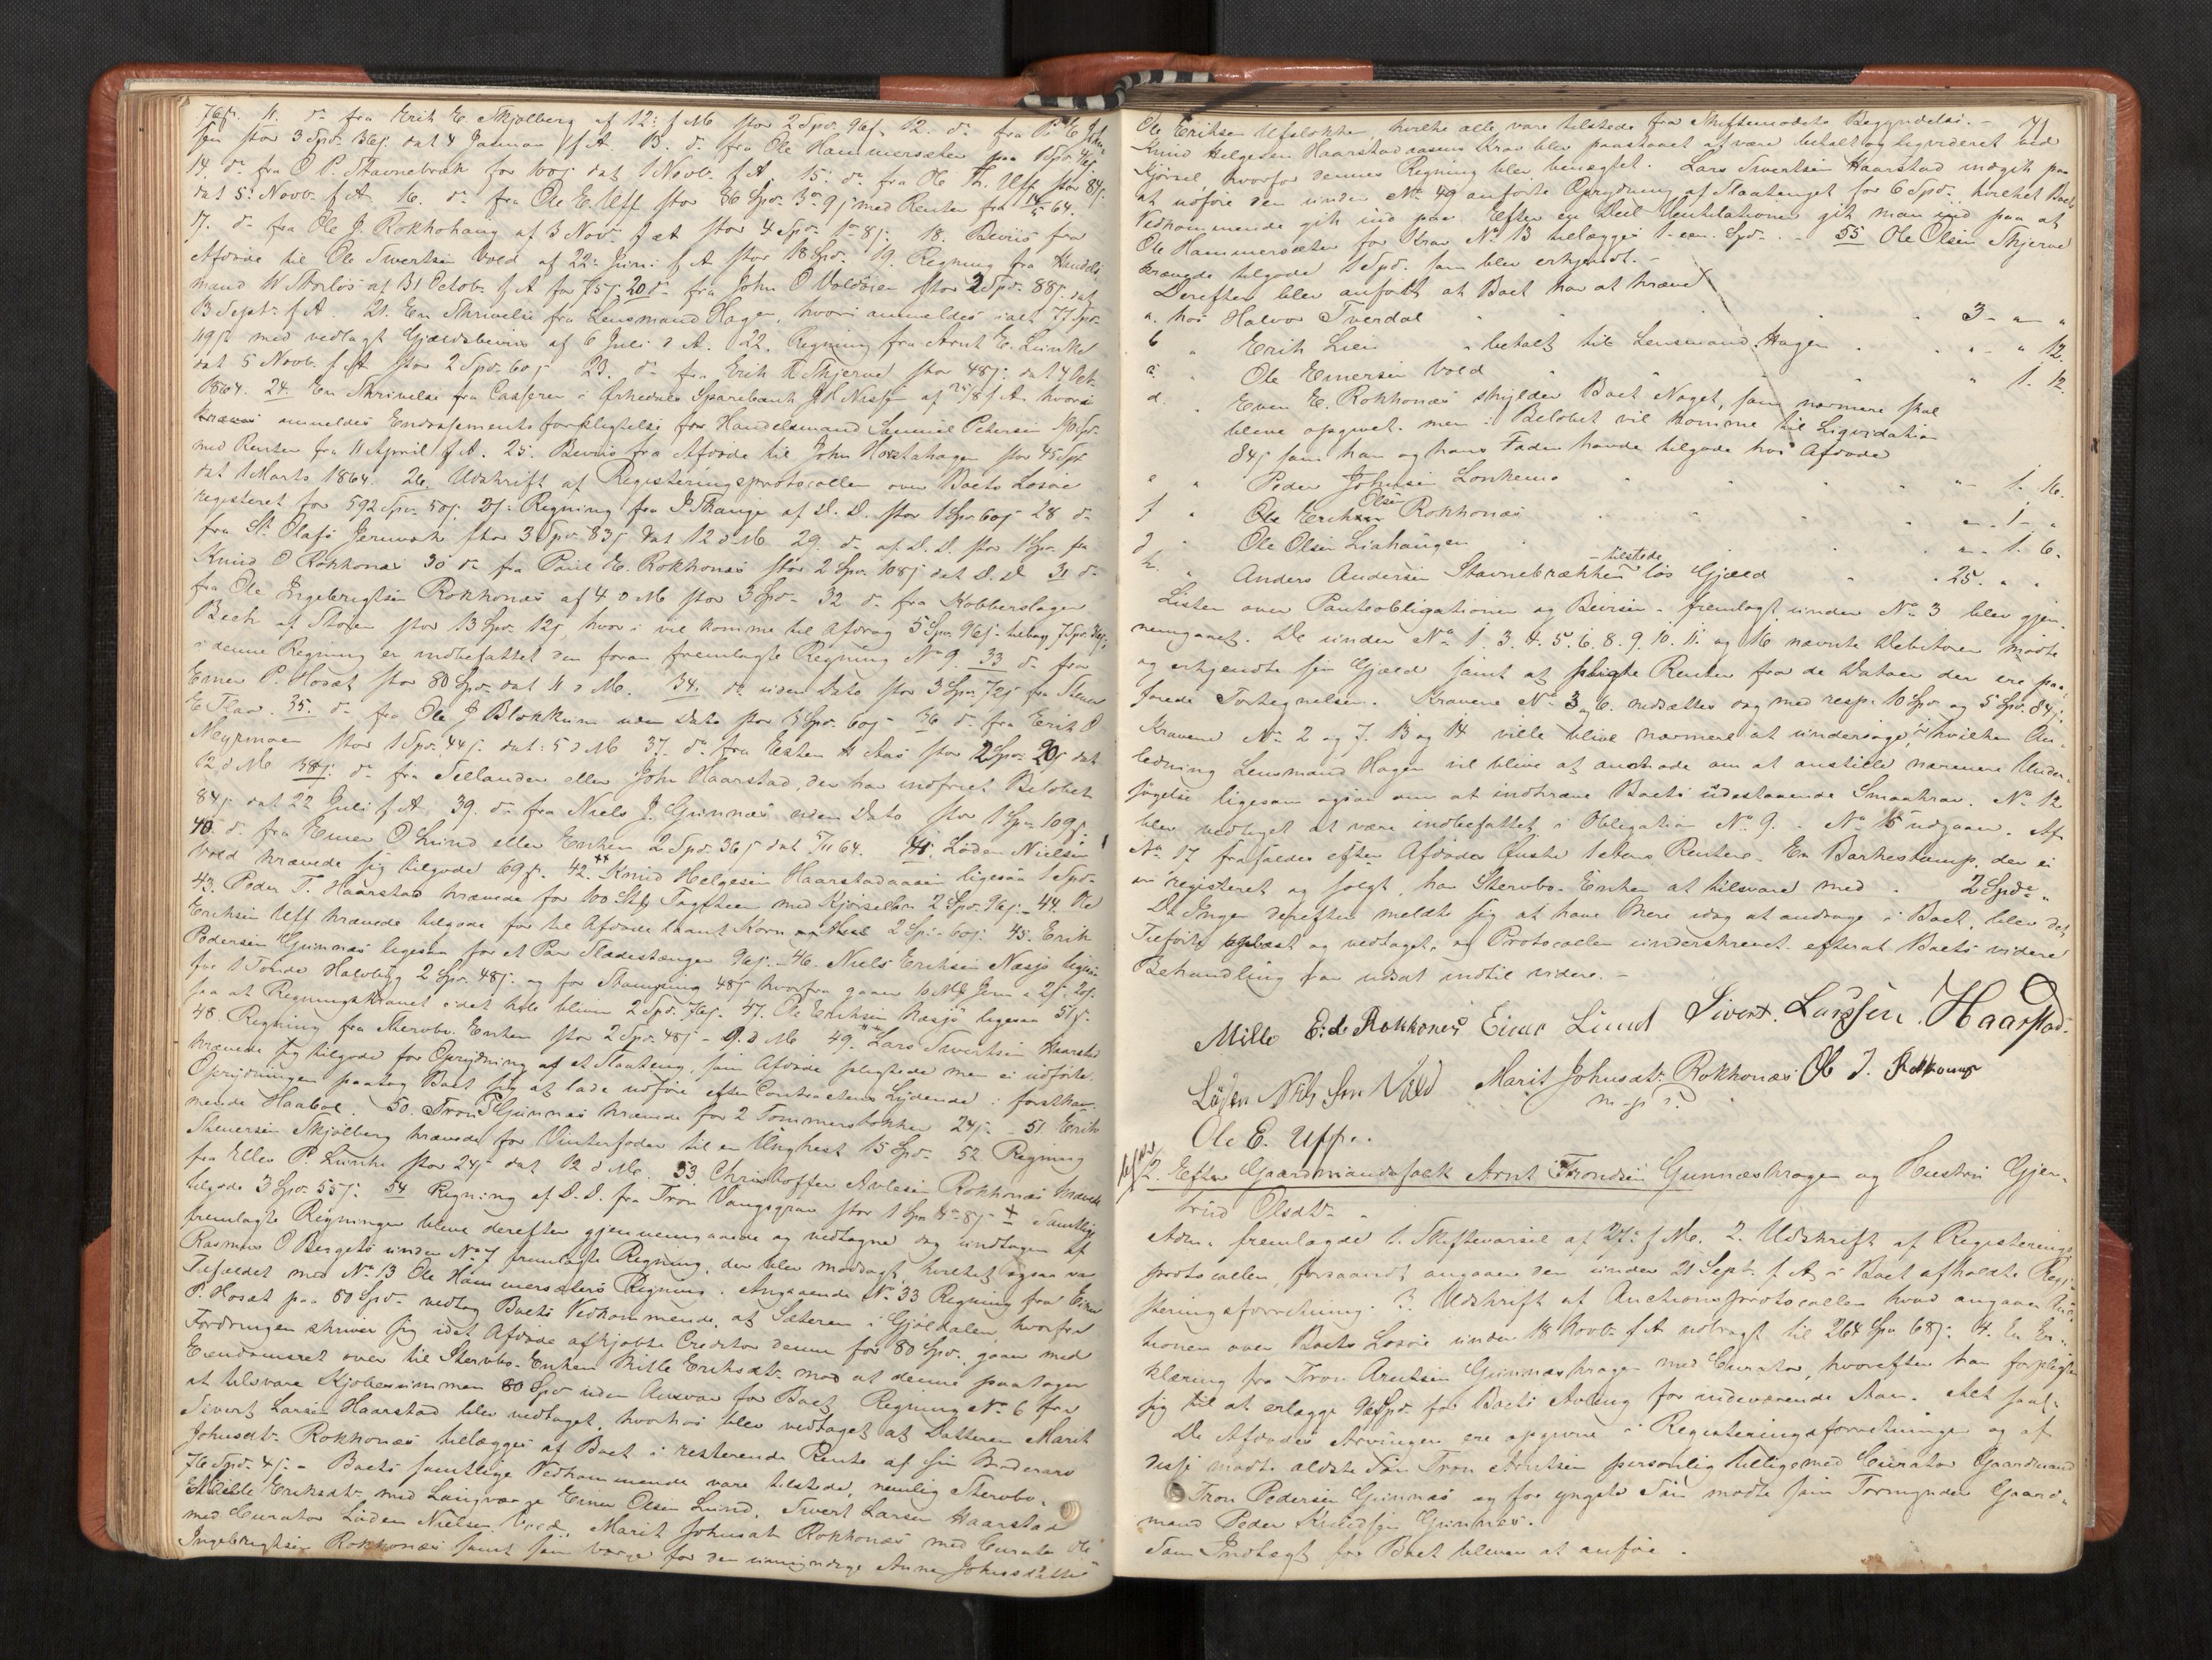 76ß. 11. d° fra Erik E. Skjølberg af 12: f M. stor 2 Spd. 96ß. 12. d° fra P. E. John-
sen stor 3 Spd. 36ß. dat 4 Januar f. A. 13. d° fra Ole Hammersæter paa 1 Spd.
14. d° fra O P. Stavnebræk for 100ß dat 1 Novb. f A. 15. d° fra Ole Th. Uff stor 84ß.
dat 5: Novb. f A. 16. d° fra Ole E. Uff stor 36 Spd. 3 ort 9ß med Renter fra 64.
17. d° fra Ole J. Rokkohaug af 3 Nov. f A stor 4 Spd. 1 ort 8ß. 18. Beviis fra
Afdøde til Ole Sivertsen Vold af 22: Juni f A stor 18 Spd. 19. Regning fra Handels-
mand W. Mørløs af 31 Octob. f A for 75ß 20. d° fra John O Voldøien stor 2 Spd. 88ß. dat
13 Septr. f A. 21. En Skrivelse fra Lensmand Hagen, hvori anmeldes ialt 77 Spd.
19ß med vedlagt Gjældsbeviis af 6 Juli d A. 22. Regning fra Arnt E. Lunke
dat 5 Novb. f A stor 2 Spd. 60ß 23. d° fra Erik K. Skjerve stor 48ß: dat 4 Oct.
1864. 24. En Skrivelse fra Casseren i Ørkedals Sparebank af f A. hvori
anmeldes Endossements forpligtelse for Handelsmand Samuel Petersen
med Renter fra 11 April f A. 25. Beviis fra Afdøde til John Horstahagen stor 45 Spd
dat 1 Marts 1864. 26. Udskrift af Registeringsprotocollen over Boets Løsøre
registeret for 592 Spd. 50ß. 27: Regning fra J. Skauge af D. D. stor 1 Spd. 60ß 28 d°
fra St. Olafs Jernværk stor 3 Spd. 83ß dat 12 d M. 29. d° af D. D. stor 1 Spd. fra
Knud O Rokkones 30 d° fra Paul E. Rokkones stor 2 Spd. 108ß dat D. D. 31 d°
fra Ole Ingebrigtsen Rokkones af 4 d M stor 3 Spd. 32 d° fra Kobberslager
Bech af Støren stor 13 Spd. 12ß, hvori vil komme til Afdrag 5 Spd. 96ß.
i denne Regning er indbefattet den foran fremlagte Regning N° 9. 33 d° fra
Einar P. Hosæt stor 80 Spd. dat 11 d M. 34. d° uden Dato stor 3 Spd. 72ß fra Steen
E Flaa. 35. d° fra Ole J Blokkum uden Dato stor 3 Spd. 60ß 36 d° fra Erik O
Nyemoen stor 1 Spd. 44ß. dat: 5 d M 37. d° fra Esten H Aas stor 2 Spd. 20ß dat
12 d M 38. d° fra Sellander eller John Haarstad, der har indfriet Beløbet
84ß dat 22 Juli f A. 39. d° fra Niels J. Grinnæs uden Dato stor 1 Spd. 109ß.
40. d° fra Einar O Lund eller Enken 2 Spd. 36ß dat 64. 41. Løden Nielsen
Vold krævede sig tilgode 69ß. 42. Knud Helgesen Haarstadaasen ligesaa 1 Spd.
43. Peder T. Haarstad krævede for 100 Stk. Tagsteen med Kjørselen 2 Spd. 96ß. 44. Ole
Eriksen Uff krævede tilgode for til Afdøde laant Korn 2 Spd. 60ß. 45. Erik
Pedersen Grinnæs ligesaa for et Par Slædestænger 96ß. 46. Niels Eriksen Næsjø ligesaa
for 1 Tønde Halvbyg 2 Spd. 48ß. og for Stampning 48ß hvorfra gaaer 10 Jern
saa at Regningskravet idet hele bliver 2 Spd. 76ß. 47. Ole Eriksen Næsjø ligesaa 51ß.
48. Regning fra Stervbo-Enken stor 2 Spd. 48ß - 9. d M. 49. Lars Sivertsen Haarstad
krævede sig tilgode for Oprydning af et Slaateng, som Afdøde pligtede men ei udførte.
Oprydningen paatog Boet sig at lade udføre efter Contractens Lydende i forstkom-
mende Haabol. 50. Tron P Grinnes krævede for 2 Tømmerstokker 24ß. 51 Erik
Steensen Skjølberg krævede for Vinterfoder til en Unghest 15 Spd. 52. Regning
fra Ellev P. Lunke stor 24ß dat 12 d M. 53. Christoffer Arnesen Rokkones krævede
tilgode 3 Spd. 55ß. 54 Regning af D. D. fra Tron Vangsgrav stor 1 Spd. Samtlige
fremlagte Regninger bleve derefter gjennemgaaede og vedtagne dog undtagen af
Rasmus O Bergets under N° 7 fremlagte Regning, der blev modsagt, hvilket ogsaa var
Tilfældet med N° 13 Ole Hammersæters Regning. Angaaende N° 33 Regning fra Einar
P. Hosæt paa 80 Spd. vedtog Boets Vedkommende, at Sæteren i Gjøldalen, hvorfra
Fordringen skriver sig idet Afdøde afkjøbte Creditor denne for 80 Spd. gaaer med
Eiendomsret over til Stervbo-Enken Mille Eriksdtr. mod at denne paatager
at tilsvare Kjøbesummen 80 Spd. uden Ansvar for Boet. Regning N° 6 fra
Sivert Larsen Haarstad blev vedtaget, hvorhos blev vedtaget at Datteren Marit
Johnsdtr. Rokkones tillægges af Boet i resterende Rente af sin Moderarv
76 Spd. 4ß. - Boets samtlige Vedkommende vare tilstede, nemlig Stervbo-
E Mille Eriksdtr. med Laugværge Einar Olsen Lund, Sivert Larsen Haarstad
med Curator Løden Nielsen Vold, Marit Johnsdtr Rokkones med Curator Ole
Ingebrigtsen Rokkones samt som Værge for den umyndige Anne Johnsdatter
Ole Eriksen Ufsløkken, hvilke alle vare tilstede fra Skiftemødets Begyndelse. - 41
Knud Helgesen Haarstadaasens Krav blev paastaaet at være betalt og liqvideret ved
Kjørsel hvorfor dennes Regning blev benægtet. Lars Sivertsen Haarstad indgik paa
at udføre den under N° 49 anførte Oprydning af Slaatenget for 6 Spd. hvilket Boets
Vedkommende gik ind paa. Efter en Deel Ventilationer gik man ind paa at
Ole Hammersæter for Krav N° 13 tillægges 1-een-Spd. - 55 Ole Olsen Skjerve
krævede tilgode 1 Spd. som blev erkjendt. -
Derefter blev anført at Boet har at kræve
a. hos Halvor Sverdal 3 - " - "
b " Erik Lien betalt til Lensmand Hagen " - " 12.
c. " Ole Einersen Vold " 1. 12
d. " Even E. Rokkones skylder Boet Noget, som nærmere skal
blive opgivet. men i Beløbet vil komme til Liqvidation
84ß som han og hans Fader havde tilgode hos Afdøde
e " Peder Johnsen Lonkemo " - 1. 16.
f " Ole Olsen Rokkones " - 1 - "
g " Ole Olsen Liahaugen " - 1. 6.
h. " Anders Andersen Stavnebrækken - tilstede løs Gjæld 25. " "
Listen over Panteobligationer og Beviser - fremlagt under N° 3 blev gjen-
nemgaaet. De under N° 1. 3. 4. 5. 6. 8. 9. 10. 11. og 16 nævnte Debitorer mødte
og erkjendte sin Gjæld samt at pligte Renter fra de Datoer der ere paa-
førte Fortegnelsen. Kravene N° 3 og 6. nedsættes dog med resp. 10 Spd. og 5 Spd. 84ß.
Kravene N° 2 og 7. 13 og 14 ville blive nærmere at undersøge, i hvilken An-
ledning Lensmand Hagen vil blive at anmode om at anstille nærmere Under-
søgelse ligesom ogsaa om at inddrive Boets udestaaende Smaakrav. N° 12
blev vedtaget at være indbefattet i Obligation N° 9. - N° 15 udgaaer. Af
N° 17 frafaldes efter Afdødes Ønske 1 Aars Renter. En Barkestamp, der ei
er registeret og solgt, har Stervbo-Enken at tilsvare med 2 Spd. "
Da Ingen derefter meldte sig at have Mere idag at andrage i Boet, blev det
Tilførte oplæst og vedtaget, og Protocollen underskrevet. efterat Boets videre
Behandling var udsat indtil videre. -
Mille E. d. Rokkones Einar Lund Sivert. Larssen. Haarstad.
Løden Nils Søn Vold Marit Johnsdtr. Rokkones Ole I. Rokkones
m. p. P.
Ole E. Uff..
2. Efter Gaardmandsfolk Arnt Trondsen Gunneskragen og Hustru Gjer-
trud Olsdtr. -
Adm. fremlagde 1. Skiftevarsel af 27: f M. 2. Udskrift af Registerings-
protocollen, forsaavidt angaaer den under 21 Sept. f. A. i Boet afholdte Regi-
steringsforretning. 3. Udskrift af Auctionsprotocollen hvad angaaer Auc-
tionen over Boets Løsøre under 18 Novb. f A udbragt til 264 Spd 68ß. 4. En Er-
klæring fra Tron Arntsen Gunneskragen med Curator, hvorefter han forpligter
sig til at erlægge Spd. for Boets Avling for indeværende Aar. Alt saal.
De Afdødes Arvinger ere opgivne i Registeringsforretningen og af
disse mødte ældste Søn Tron Arntsen personlig tilligemed Curator Gaardmand
Tron Pedersen Grinnæs og for yngste Søn mødte som Formynder Gaard-
mand Peder Knudsen Grinnæs.
Som Indtægt for Boet bliver at anføre.